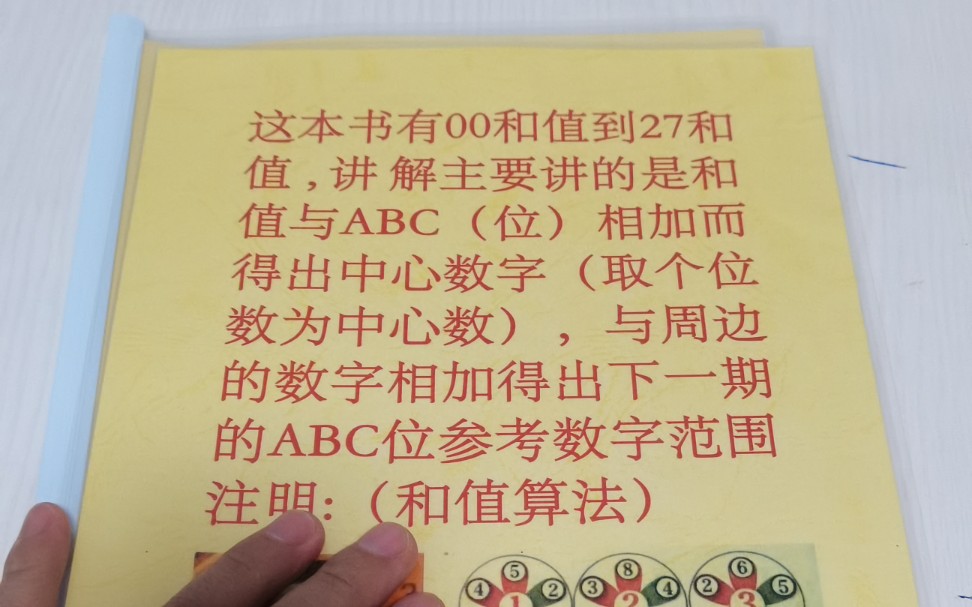 这本书有00和值到27和
值,讲解主要讲的是和
值与ABC（位）相加而
得出中心数字（取个位
数为中心数），与周边
的数字相加得出下一期
的ABC位参考数字范围
注明:（和值算法）
5 8 6
4 2 3 4 2 5
1 2 3